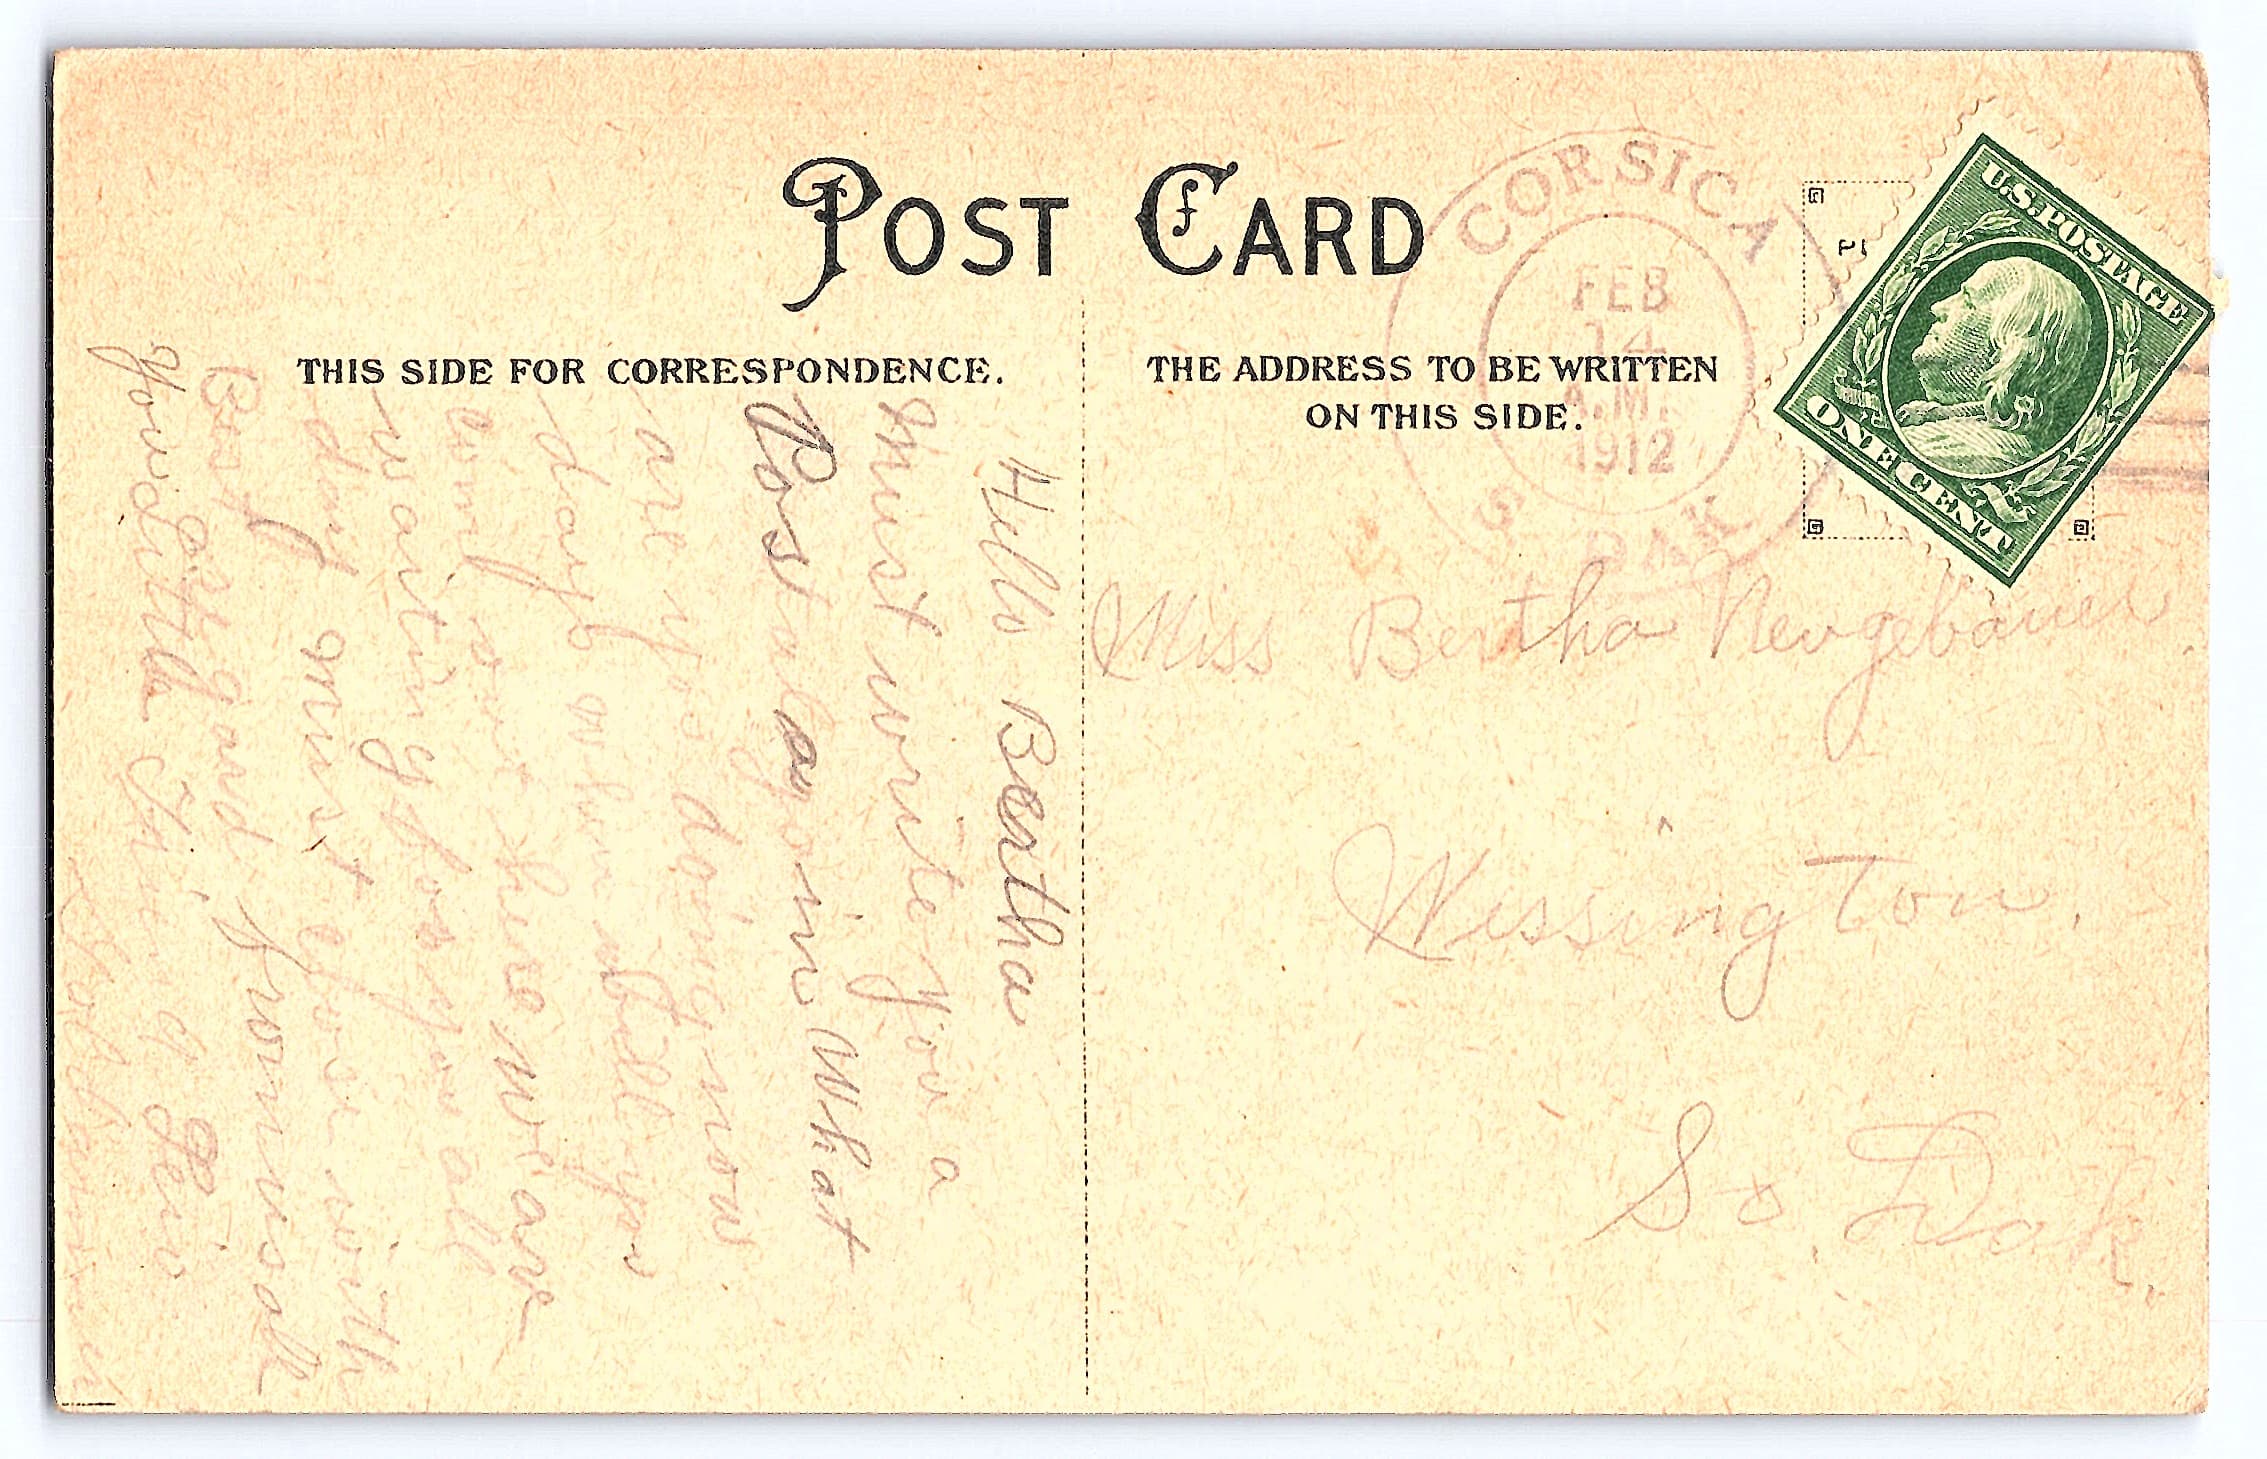 POST CARD
THIS SIDE FOR CORRESPONDENCE.
THE ADDRESS TO BE WRITTEN
ON THIS SIDE.
CORSICA
FEB
14
A.M.
1912
S. DAK.
U.S. POSTAGE
ONE CENT
Miss Bertha Neugebauer
Wessington.
So. Dak.
Hello Bertha
must write you a
Postal again What
are you doing now
days when will you
come over here we are
waiting for you all
day must close with
Best regard from us all
Your little Friend